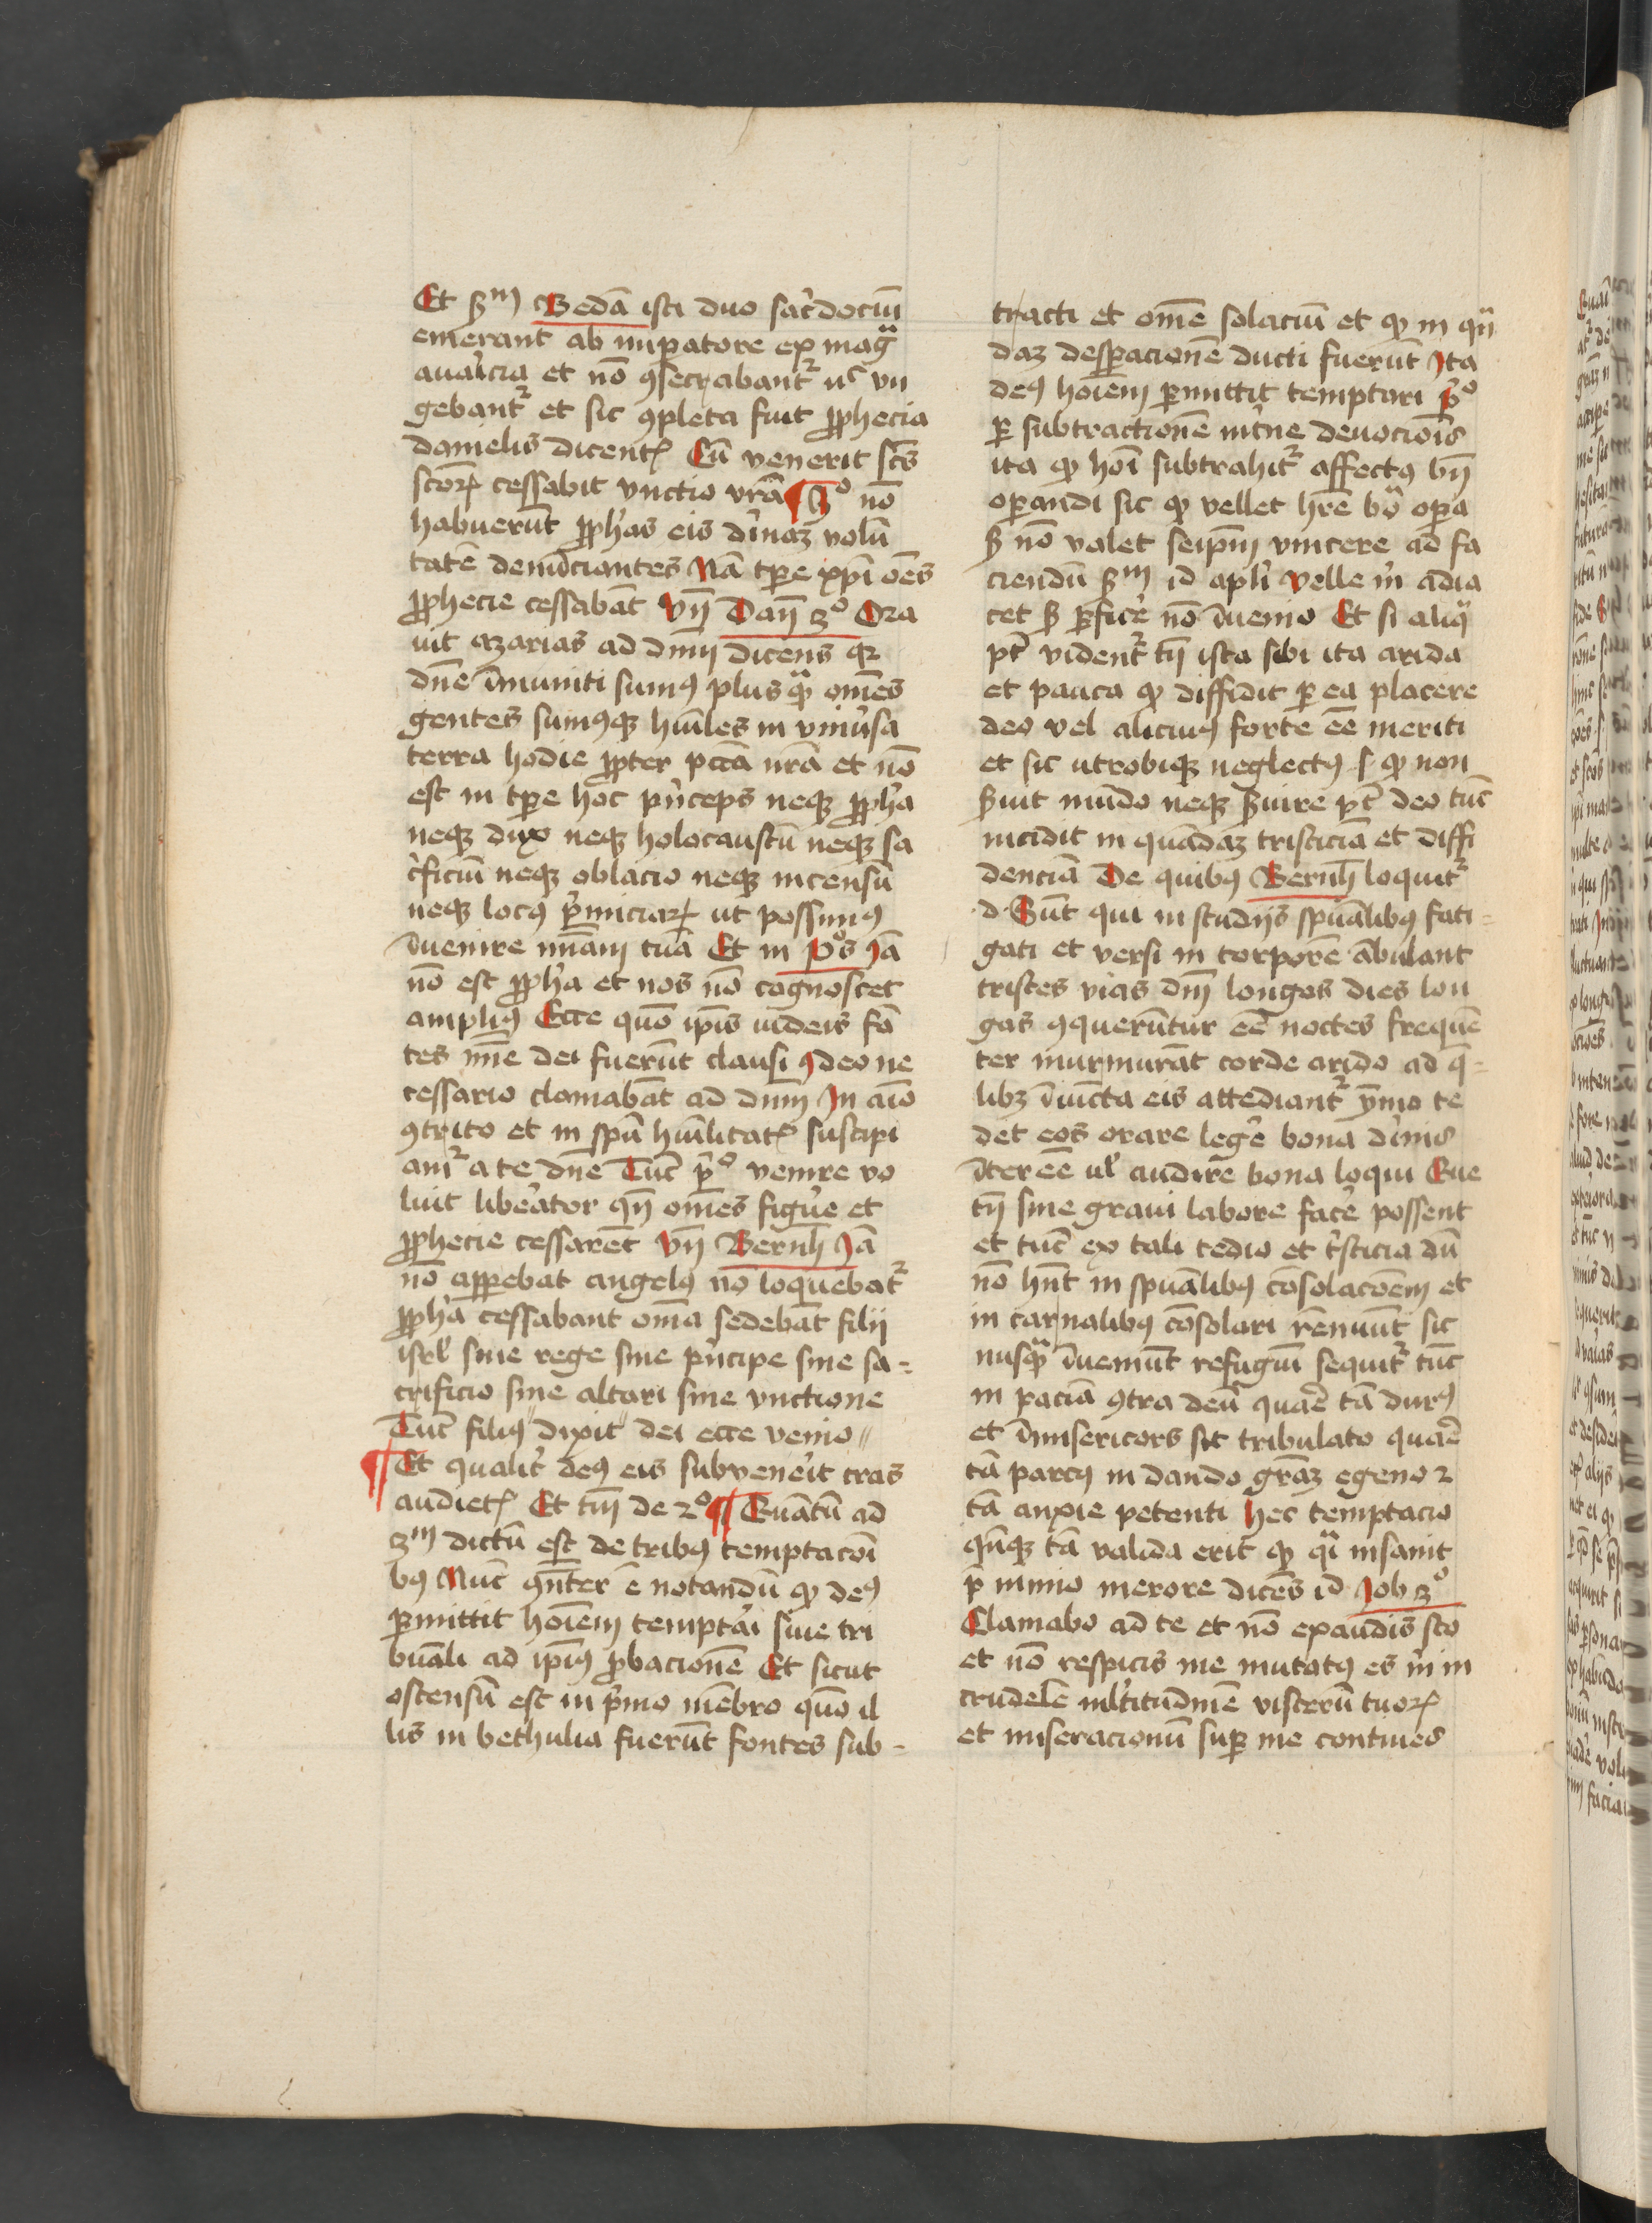 Et ẜm Bedā isti duo sac̓dociū
emerant ab imꝑatore ex mag̃
auaricia et nō ꝯsecrabant᷑ nͨ vn
gebant᷑ et sic ꝯpleta fuit ꝓphecia
danielis dicentꝭ Cū venerit scͣs
scōꝝ cessabit vnctio vr̄a ¶ 3º nō
habuerūt ꝓph̓as eis diuinaꝫ volū
tatē denūciantes Nā tꝑe xp̄i oēs
ꝓphecie cessabāt Vn̄ Dan̄ 3º Ora
uit azarias ad dn̄m dicens qꝛ
dn̄e īmuniti sumꝰ plus qͣ̄ om̄es
gentes sumꝰqꝫ hūiles in vniu̓sa
terra hodie ꝓpter pctā nr̄a et nō
est in tꝑe hoc pͥnceps neqꝫ ꝓph̓a
neqꝫ dux neqꝫ holocaustū neqꝫ sa
cͥficiū neqꝫ oblacio neqꝫ incensū
neqꝫ locꝰ pͥmiciaꝝ ut possimꝰ
īuenire mīam tuā Et in Pͦs Jā
nō est ꝓph̓a et nos nō cognoscet
ampliꝰ Ecce quō ip̄is iudeis fō
tes mīe dei fuerūt clausi ꝯdeo ne
cessario clamabāt ad dn̄m In aīo
ꝯtrito et in sp̄u hūilitatꝭ suscipi
am᷑ a te dn̄e Tūc pͥº venire vo
luit liberator qn̄ om̄es figure et
ꝓphecie cessarēt Vn̄ Bernh̄ Jā
nō apꝑebat angelꝰ nō loquebat᷑
ꝓph̓a cessabant om̄ia sedebāt filii
isrl̓ sine rege sine pͥncipe sine sa=
crificio sine altari sine vnctione
Tūc filiꝰ "dixit" dei ecce venio"
¶ Et qualit̓ deꝰ eis subuenerit cras
audietꝭ Et tm̄ de 2º ¶ Quātū ad
3m dictū est de tribꝰ temptacōi
bꝰ Nūc ꝯn̄ter ē notandū ꝙ deꝰ
ꝑmittit hoīem temptari siue tri
bulari ad ip̄iꝰ ꝓbacionē Et sicut
ostensū est in pͥmo mēbro quō il
lis in bethulia fuerūt fontes sub=
tracti et om̄e solaciū et ꝙ in qͣn̄
daꝫ desꝑacionē ducti fuerūt Ita
deꝰ hoīem ꝑmittit temptari pͥº
ꝑ subtractionē int̓ne deuociōis
ita ꝙ hoī subtrahit᷑ affectꝰ bn̄
oꝑandi sic ꝙ vellet hr̄e boͣ oꝑa
ẜ nō valet seip̄m vincere ad fa
ciendū ẜm id apl̓i Velle mͥ adia
cet ẜ ꝑficer̓ nō īuenio Et si aliqͣ
pt̄ vident᷑ tn̄ ista sibi ita arida
et pauca ꝙ diffidit ꝑ ea placere
deo vel alicuiꝰ forte ēe meriti
et sic utrobiqꝫ neglectꝰ s ꝙ non
ẜuit mūdo neqꝫ ẜuire pt̄ deo tūc
incidit in quādaꝫ tristiciā et diffi
denciā De quibꝰ Bernh̄ loquit᷑
d Sūt qui in studijs sp̄ualibꝰ fati=
gati et versi in torporē ābulant
tristes vias dn̄i longas dies lon
gas ꝯquerūtur ēe noctes frequē
ter murmurāt corde arido ad q̄=
libꝫ īiūcta eis attediant᷑ ȳmo te
det eos orare leger̓ bona diuinis
īter ēe ul̓ audire bona loqui Que
tn̄ sine graui labore facer̓ possent
et tūc ex tali tedio et tͥsticia dū
nō hn̄t in sp̄ualibꝰ cōsolacōem et
in carnalibꝰ cōsolari rēnuūt sic
nusqͣ̄ īueniūt refugiū sequit᷑ tūc
in paciā ꝯtra deū quare tā durꝰ
et īmisericors sit tribulato quare
tā parcꝰ in dando gr̄aꝫ egeno ⁊
tā anxie petenti Hec temptacio
qn̄qꝫ tā valida erit ꝙ qͣi insanit
p̄ nimio merore dicēs id Job 3º
Clamabo ad te et nō exaudis sto
et nō respicis me mutatꝰ es mͥ in
crudelē ml̓titudinē viscerū tuoꝝ
et miseracionū suꝑ me contines